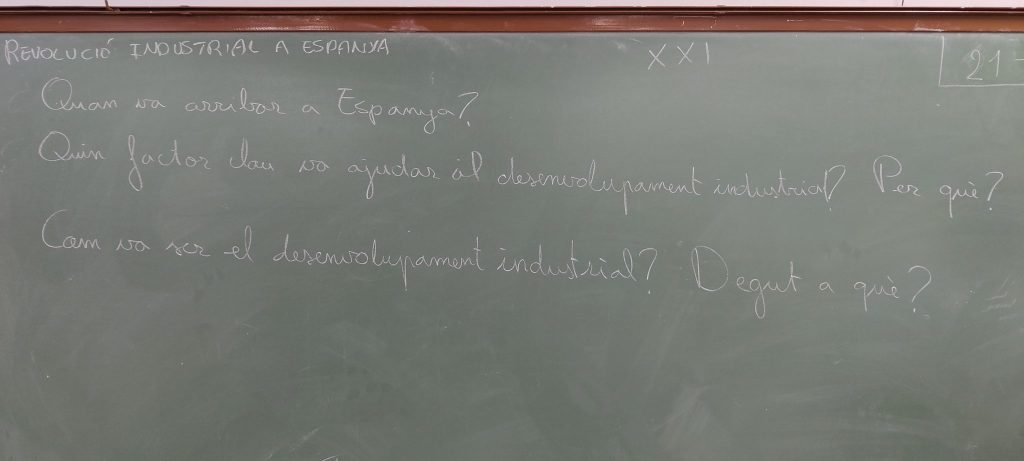 REVOLUCIÓ INDUSTRIAL A ESPANYA
XXI
21
Quan va arribar a Espanya?
Quin factor clau va ajudar al desenvolupament industrial? Per què?
Com va ser el desenvolupament industrial? Degut a què?